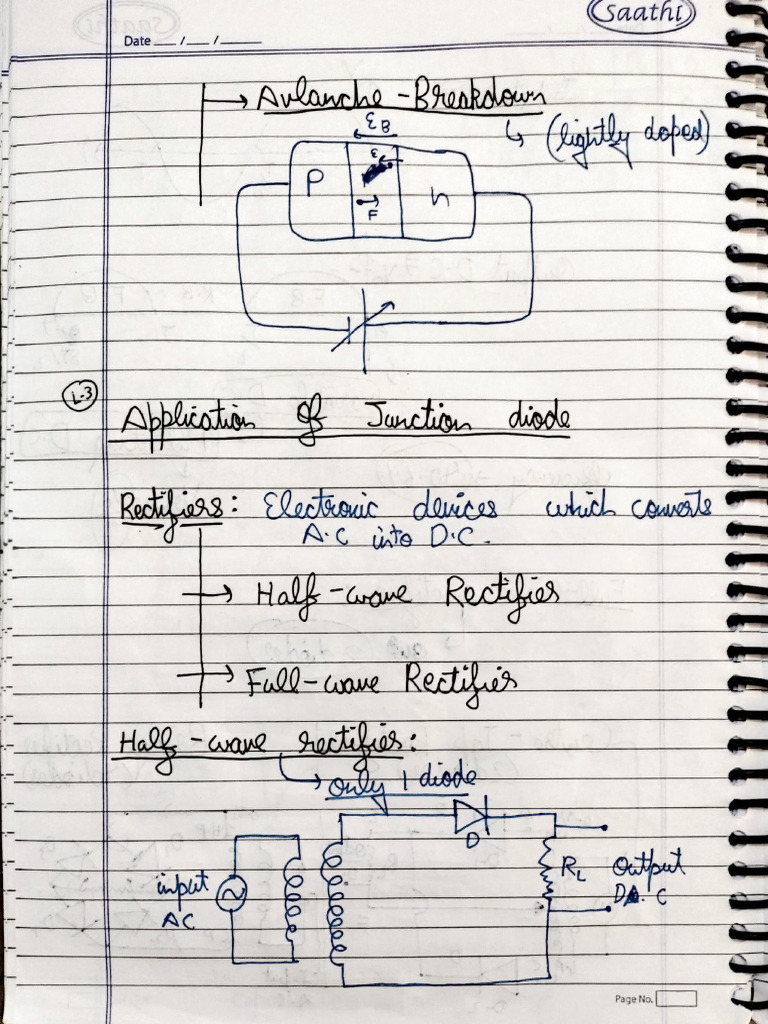 Saathi
Date __/__/____
→ Avlanche-Breakdown
↳ (lightly doped)
ƐB
P
n
F
L-3
Application of Junction diode
Rectifiers: Electronic devices which converts
A.C into D.C.
→ Half-wave Rectifies
→ Full-wave Rectifies
Half-wave rectifies:
→ only 1 diode
D
input
AC
RL
Output
D.C
Page No.